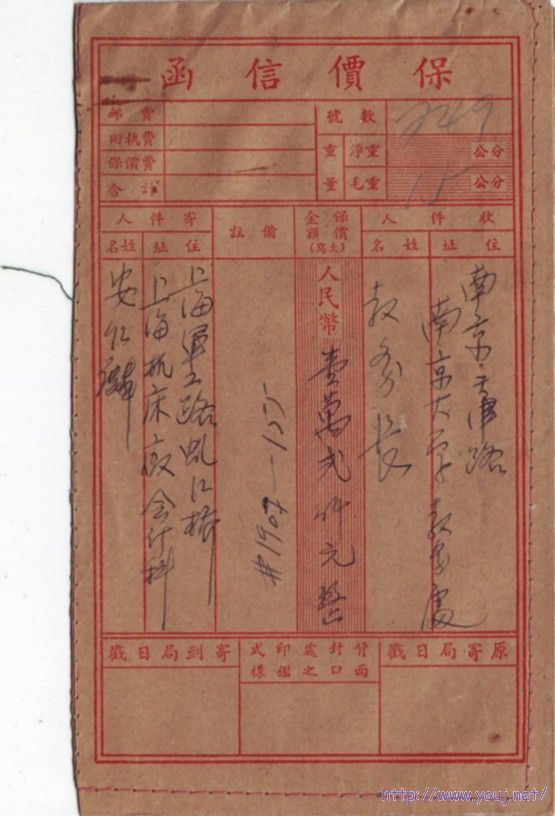 保價信函
郵費
回執費
保價費
合計
號數
249
重量
淨重
公分
毛重
15
公分
收件人
住址
姓名
南京·天津路
南京大学教务處
教务長
保價金額(大寫)
人民幣
壹萬弍仟元整
備註
#1907-155
寄件人
住址
姓名
上海軍工路虬江桥
上海机床廠会计科
安仁麟
原寄局日戳
背面封口處之印鑑式樣
寄到局日戳
http://www.youj.net/